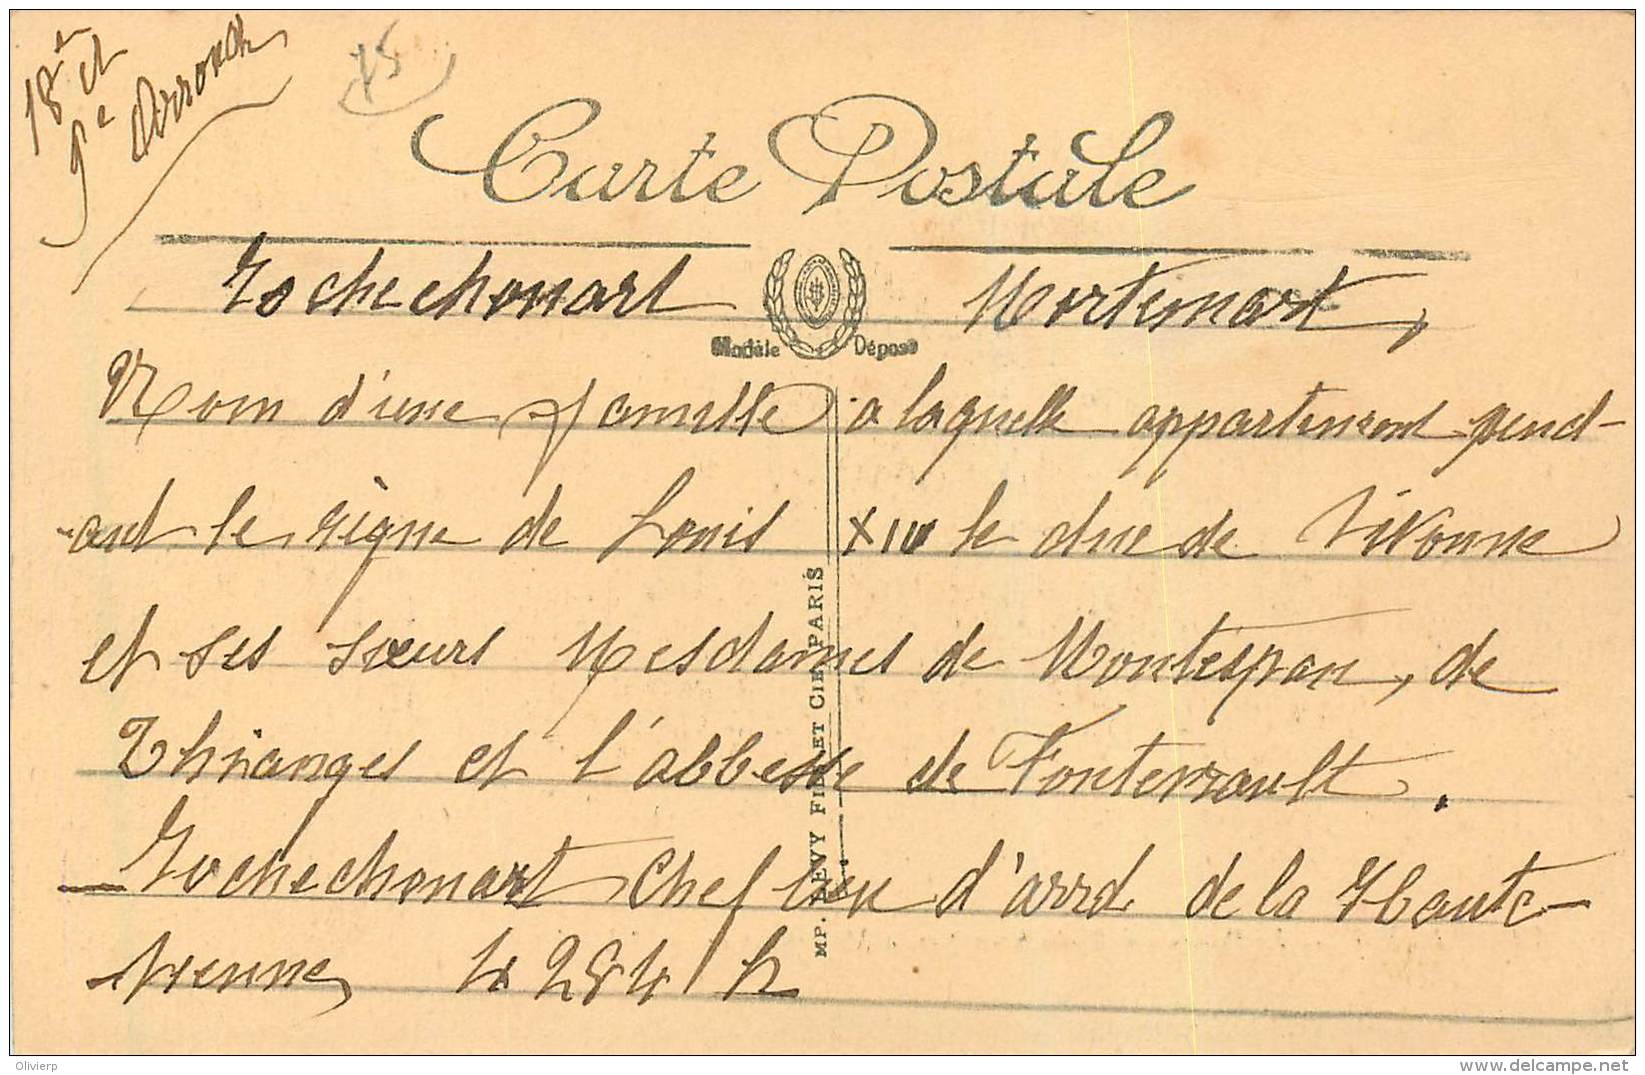 18e et
9e Arrond
75
Carte Postale
Rochechouart Mortemart,
Modèle Déposé
Nom d'une famille a laquelle appartenrent pend-
ant le règne de Louis XIV le duc de Vivonne
et ses sœurs Mesdames de Montespan, de
Thianges et l'abbesse de Fontevrault.
Rochechouart Chef lieu d'arrd de la Haute-
vienne, 4284 h
MP. LEVY FILS ET CIE PARIS
Olivierp
www.delcampe.net